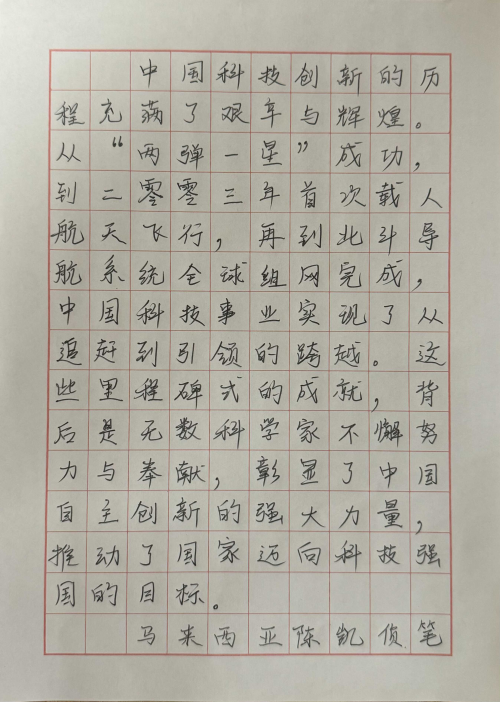 中国科技创新的历
程充满了艰辛与辉煌。
从“两弹一星”成功，
到二零零三年首次载人
航天飞行，再到北斗导
航系统全球组网完成，
中国科技事业实现了从
追赶到引领的跨越。这
些里程碑式的成就，背
后是无数科学家不懈努
力与奉献，彰显了中国
自主创新的强大力量，
推动了国家迈向科技强
国的目标。
马来西亚陈凯侦笔